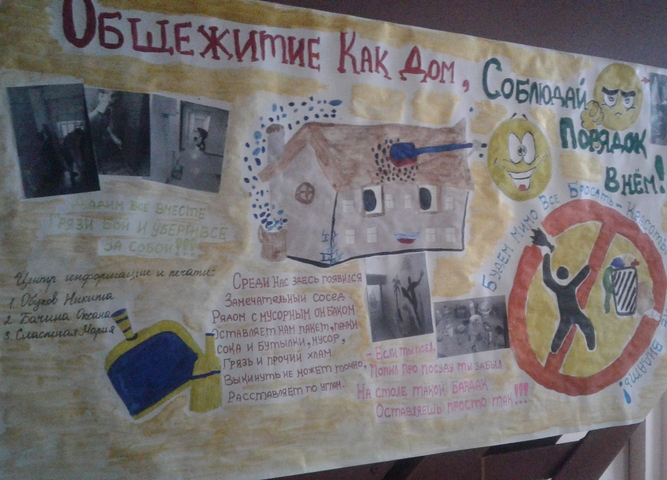 Общежитие Как Дом,
Соблюдай
Порядок
в нём!
Дадим все вместе
грязи бой и уберём все
за собой!!!
Центр информации и печати:
1. Обухов Никита
2. Бачина Оксана
3. Сласпеная Мария
Среди нас здесь появился
Замечательный сосед
Рядом с мусорным он баком
Оставляет нам пакет,
сока и бутылки, мусор,
Грязь и прочий хлам.
Выкинуть не может точно,
Расставляет по углам.
- Если ты поел,
Попил про посуду ты забыл
На столе такой бардак
Оставляешь просто так!!!
Будем мимо все бросать -